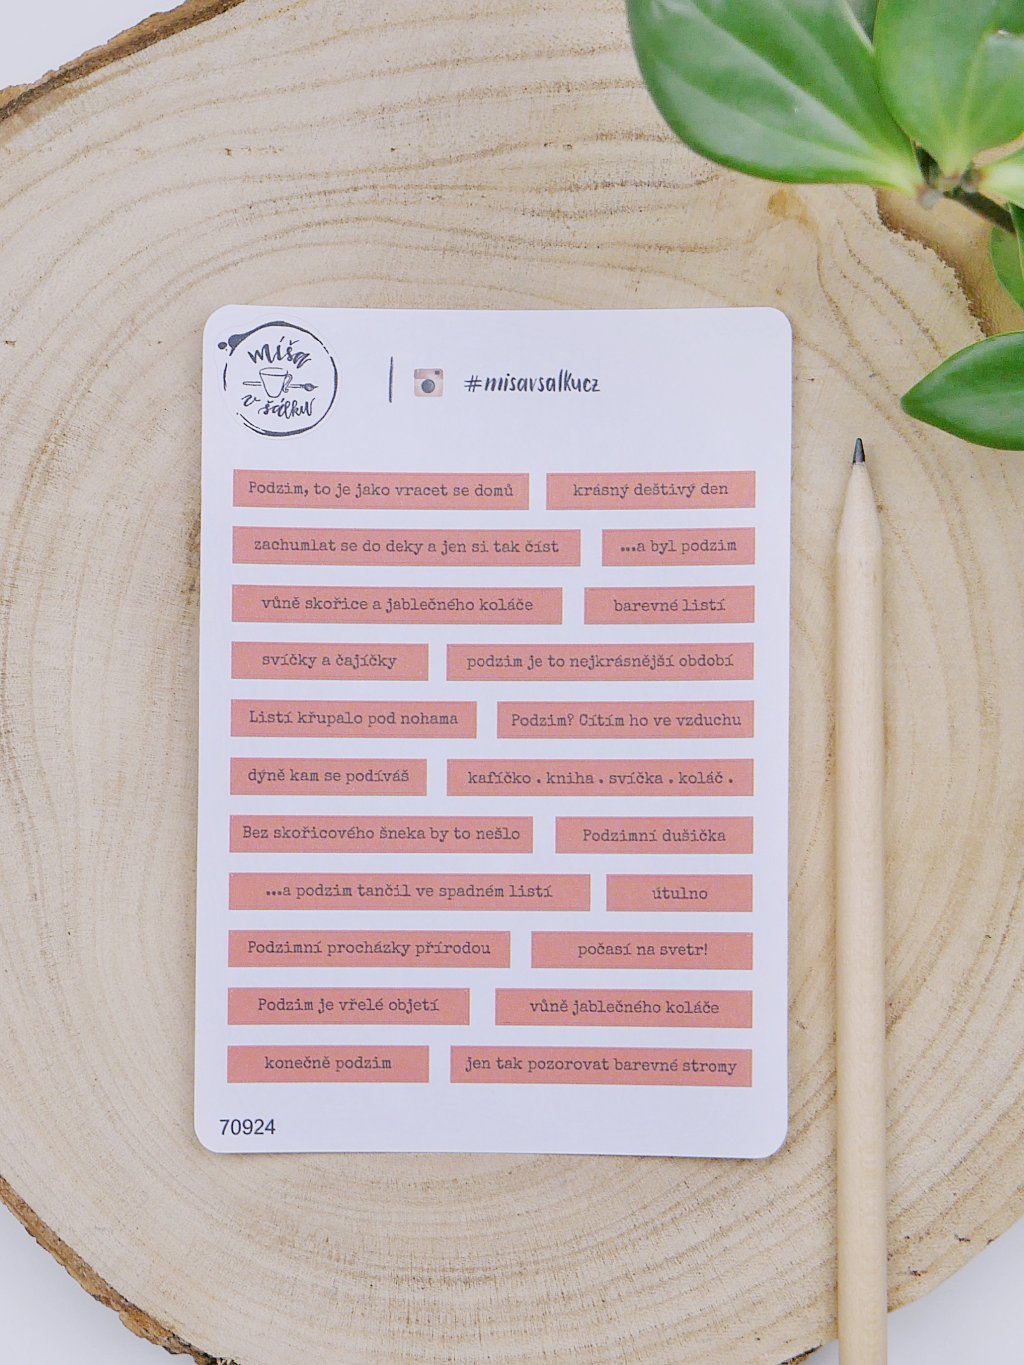 míša
v šálku
#misavsalkucz
Podzim, to je jako vracet se domů
krásný deštivý den
zachumlat se do deky a jen si tak číst
...a byl podzim
vůně skořice a jablečného koláče
barevné listí
svíčky a čajíčky
podzim je to nejkrásnější období
Listí křupalo pod nohama
Podzim? Cítím ho ve vzduchu
dýně kam se podíváš
kafíčko . kniha . svíčka . koláč .
Bez skořicového šneka by to nešlo
Podzimní dušička
...a podzim tančil ve spadném listí
útulno
Podzimní procházky přírodou
počasí na svetr!
Podzim je vřelé objetí
vůně jablečného koláče
konečně podzim
jen tak pozorovat barevné stromy
70924